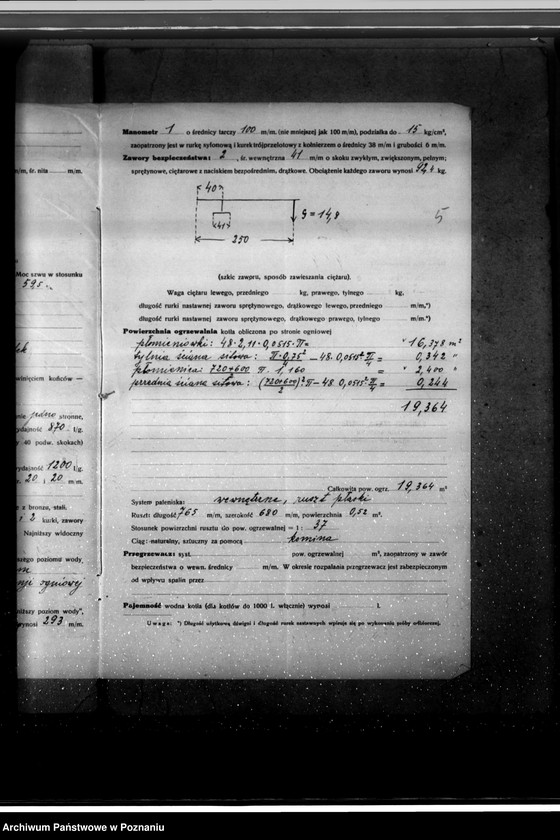 Manometr 1 o średnicy tarczy 100 m/m. (nie mniejszej jak 100 m/m), podziałka do 15 kg/cm²,
zaopatrzony jest w rurkę syfonową i kurek trójprzelotowy z kołnierzem o średnicy 38 m/m i grubości 6 m/m.
Zawory bezpieczeństwa: 2, śr. wewnętrzna 41 m/m o skoku zwykłym, zwiększonym, pełnym;
sprężynowe, ciężarowe z naciskiem bezpośrednim, drążkowe. Obciążenie każdego zaworu wynosi kg.
40
41
G = 14,8
250
5
(szkic zaworu, sposób zawieszania ciężaru).
Waga ciężaru lewego, przedniego kg, prawego, tylnego kg,
długość rurki nastawnej zaworu sprężynowego, drążkowego lewego, przedniego m/m,*)
długość rurki nastawnej zaworu sprężynowego, drążkowego prawego, tylnego m/m.*)
Powierzchnia ogrzewalna kotła obliczona po stronie ogniowej
płomieniówki: 48 · 2,11 · 0,0515 · π = " 16,378 m²
tylnia ściana sitowa: π · 0,75² – 48 · 0,0515² π/4 = 0,342 "
płomienica: 720+600 π · 1,160 = " 2,400 "
przednia ściana sitowa: (720+600/2)² π – 48 0,0515² · π/4 = 0,244
19,364
Całkowita pow. ogrz. 19,364 m²
System paleniska: wewnętrzne, ruszt płaski
Ruszt: długość 765 m/m, szerokość 680 m/m, powierzchnia 0,52 m².
Stosunek powierzchni rusztu do pow. ogrzewalnej = 1 : 37
Ciąg: naturalny, sztuczny za pomocą komina
Przegrzewacz: syst. pow. ogrzewalnej m², zaopatrzony w zawór
bezpieczeństwa o wewn. średnicy m/m. W okresie rozpalania przegrzewacz jest zabezpieczonym
od wpływu spalin przez
Pojemność wodna kotła (dla kotłów do 1000 l. włącznie) wynosi l.
Uwaga: *) Długość użytkową dźwigni i długość rurek nastawnych wpisuje się po wykonaniu próby odbiorczej.
m/m, śr. nita m/m.
Moc szwu w stosunku
59,5
winięciem końców —
nie jedno stronne,
ydajność 870 l/g.
y 40 podw. skokach)
ydajność 1200 l/g.
z. 20 i 20 m/m.
z bronzu, stali.
i 2 kurki, zawory
Najniższy widoczny
szego poziomu wody
ogniowy
niższy poziom wody",
wynosi 293 m/m.
Archiwum Państwowe w Poznaniu